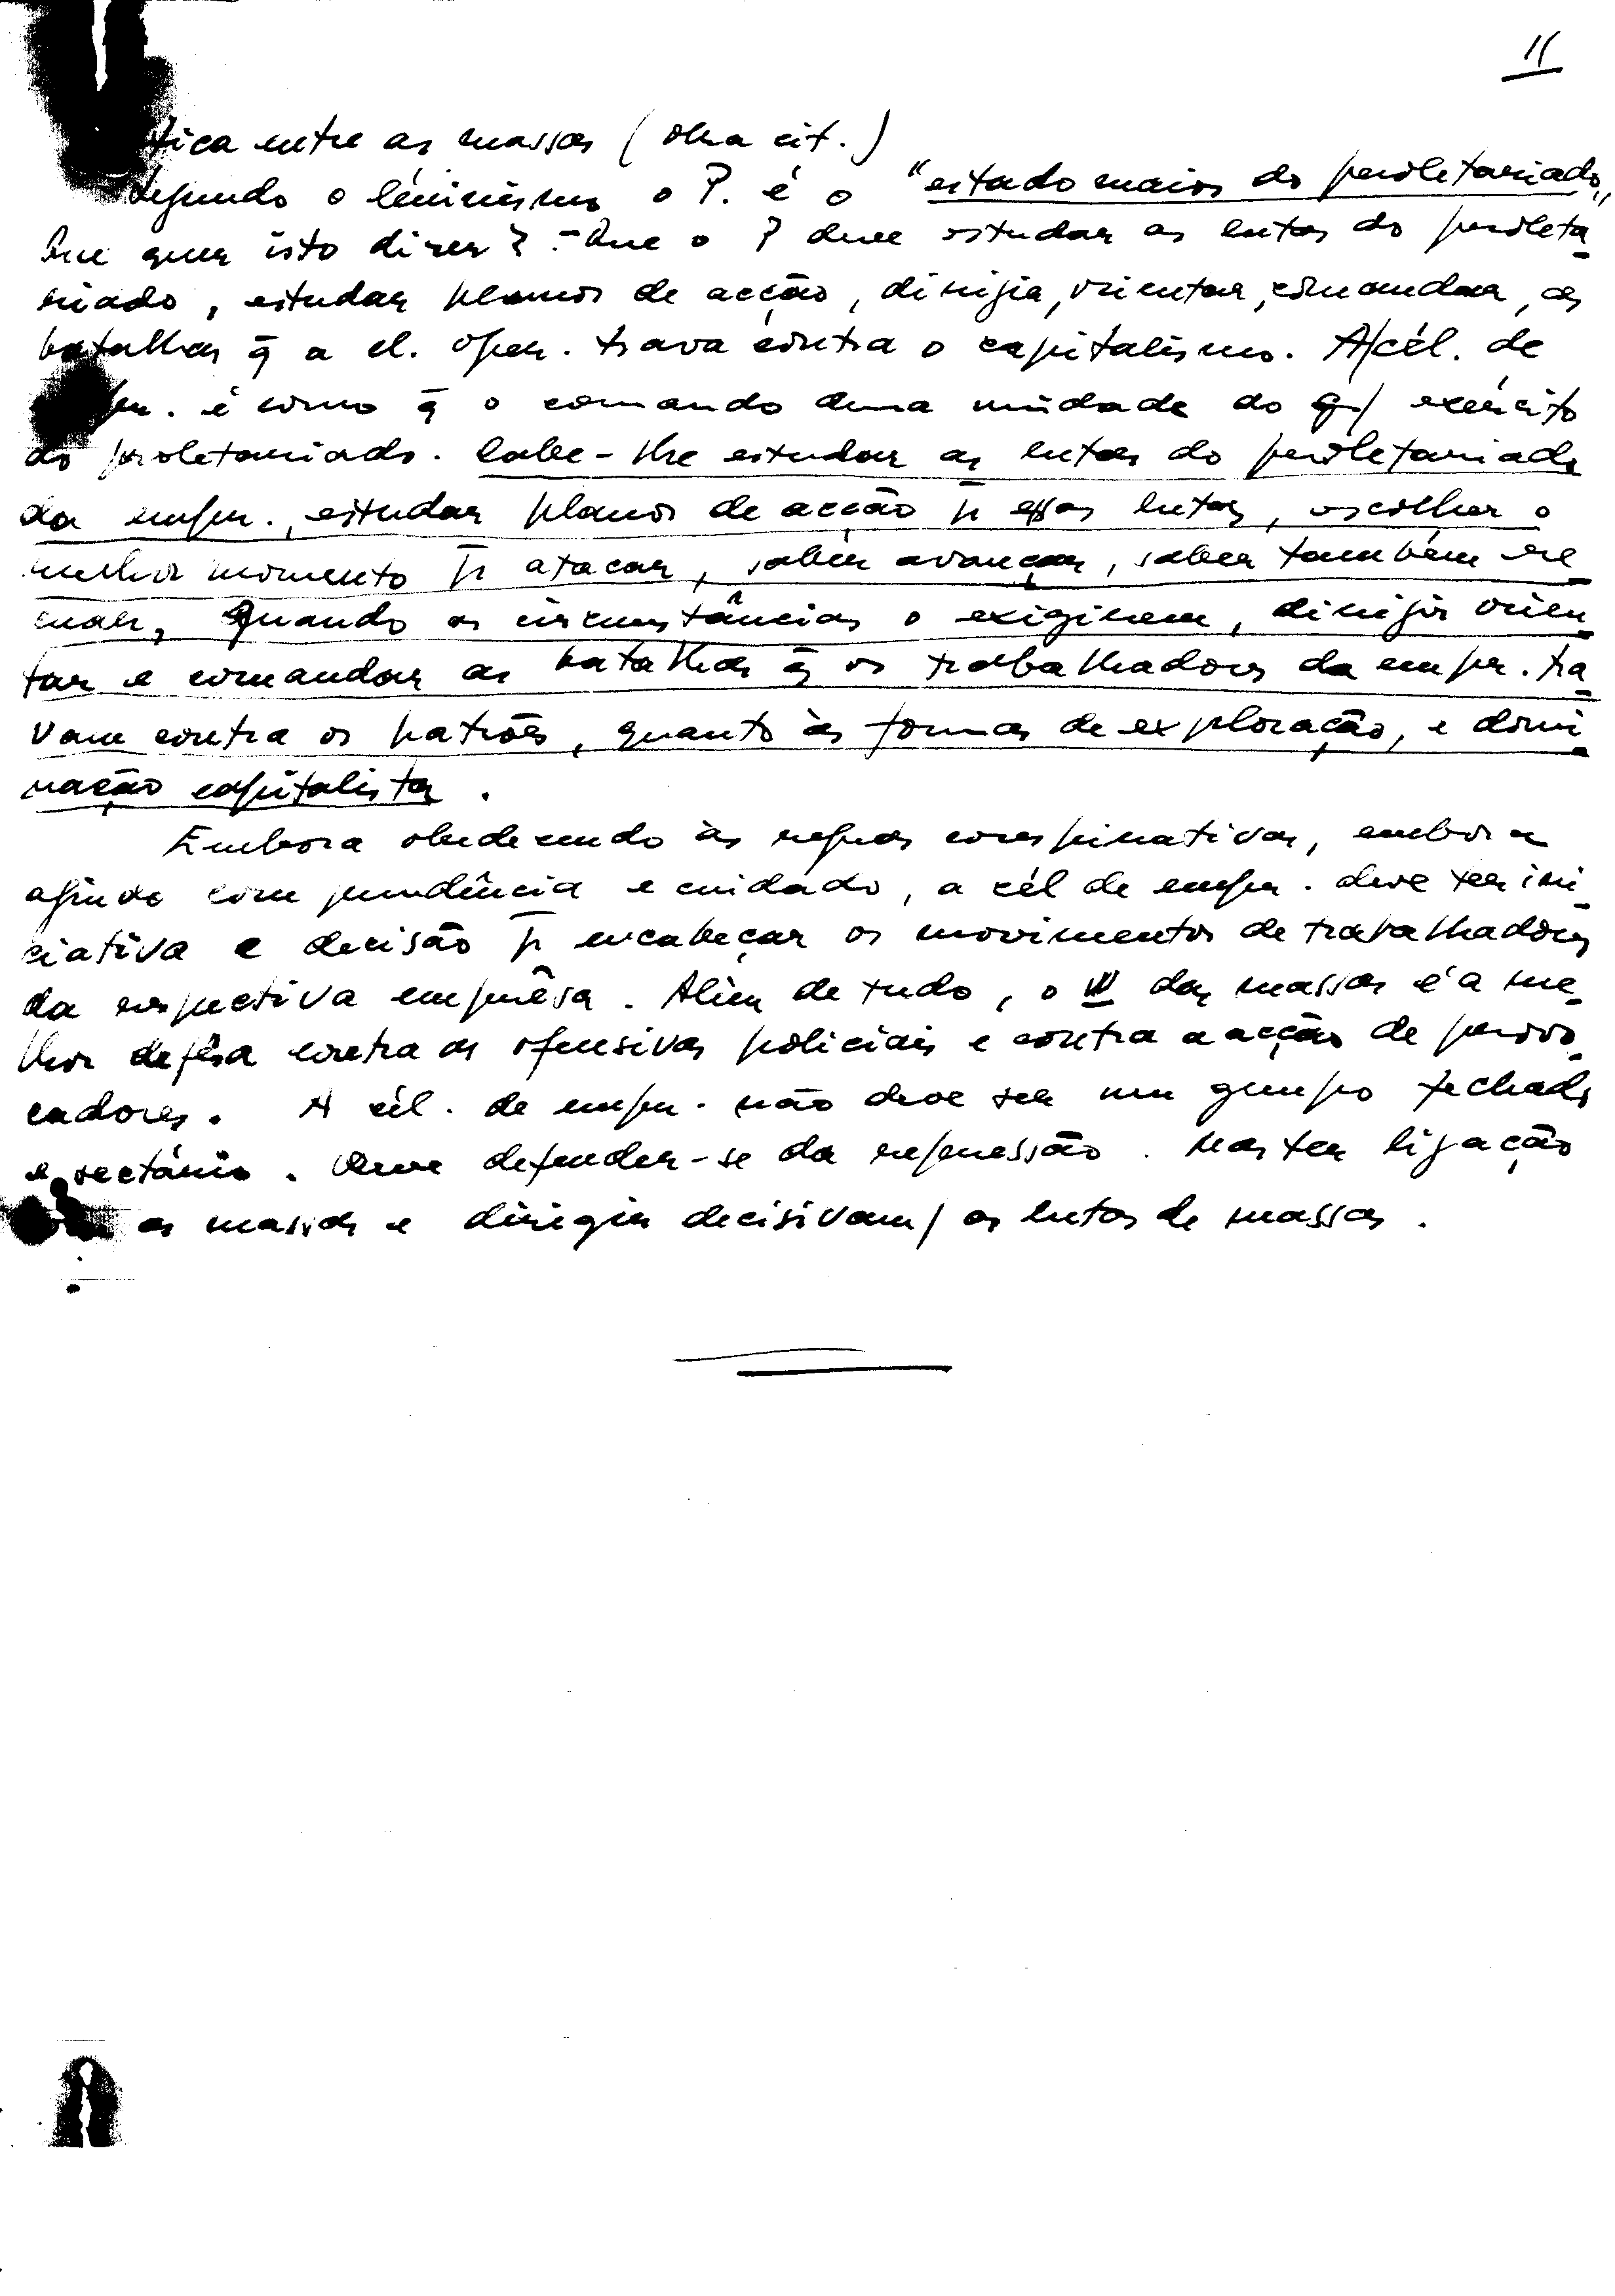 11
tica entre as massas (obra cit.)
Segundo o leninismo o P. é o "estado maior do proletariado"
Que quer isto dizer? - Que o P deve estudar as lutas do proleta
riado, estudar planos de acção, dirigir, orientar, comandar, as
batalhas q̄ a cl. oper. trava contra o capitalismo. A cél. de
é como q̄ o comando duma unidade do exército
do proletariado. Cabe-lhe estudar as lutas do proletariado
da empr., estudar planos de acção p̄ essas lutas, escolher o
melhor momento p̄ atacar, saber avançar, saber também re
cuar, quando as circunstâncias o exigirem, dirigir orien
tar e comandar as batalhas q̄ os trabalhadores da empr. tra
vam contra os patrões, quanto às formas de exploração, e domi
nação capitalista.
Embora obedecendo às regras conspirativas, embora
agindo com prudência e cuidado, a cél de empr. deve ter ini
ciativa e decisão p̄ encabeçar os movimentos de trabalhadores
da respectiva emprêsa. Além de tudo, o das massas é a me
lhor defêsa contra as ofensivas policiais e contra a acção de provo
cadores. A cél. de empr. não deve ser um grupo fechado
e sectário. Deve defender-se da repressão. Mas ter ligação
as massas e dirigir decisivam/ as lutas de massas.